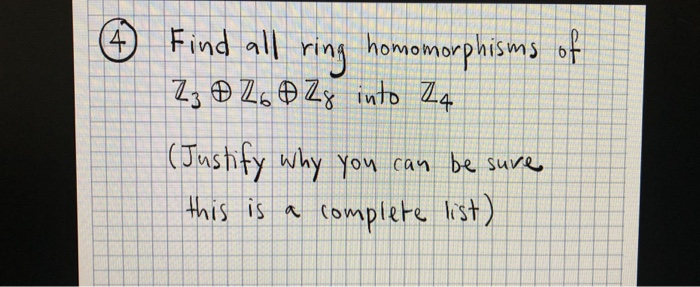 ④ Find all ring homomorphisms of
ℤ₃ ⊕ ℤ₆ ⊕ ℤ₈ into ℤ₄
(Justify why you can be sure
this is a complete list)